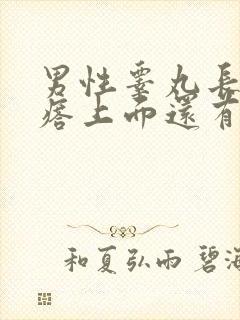 男性睾丸長
瘩上而還有
和夏弘雨 碧海